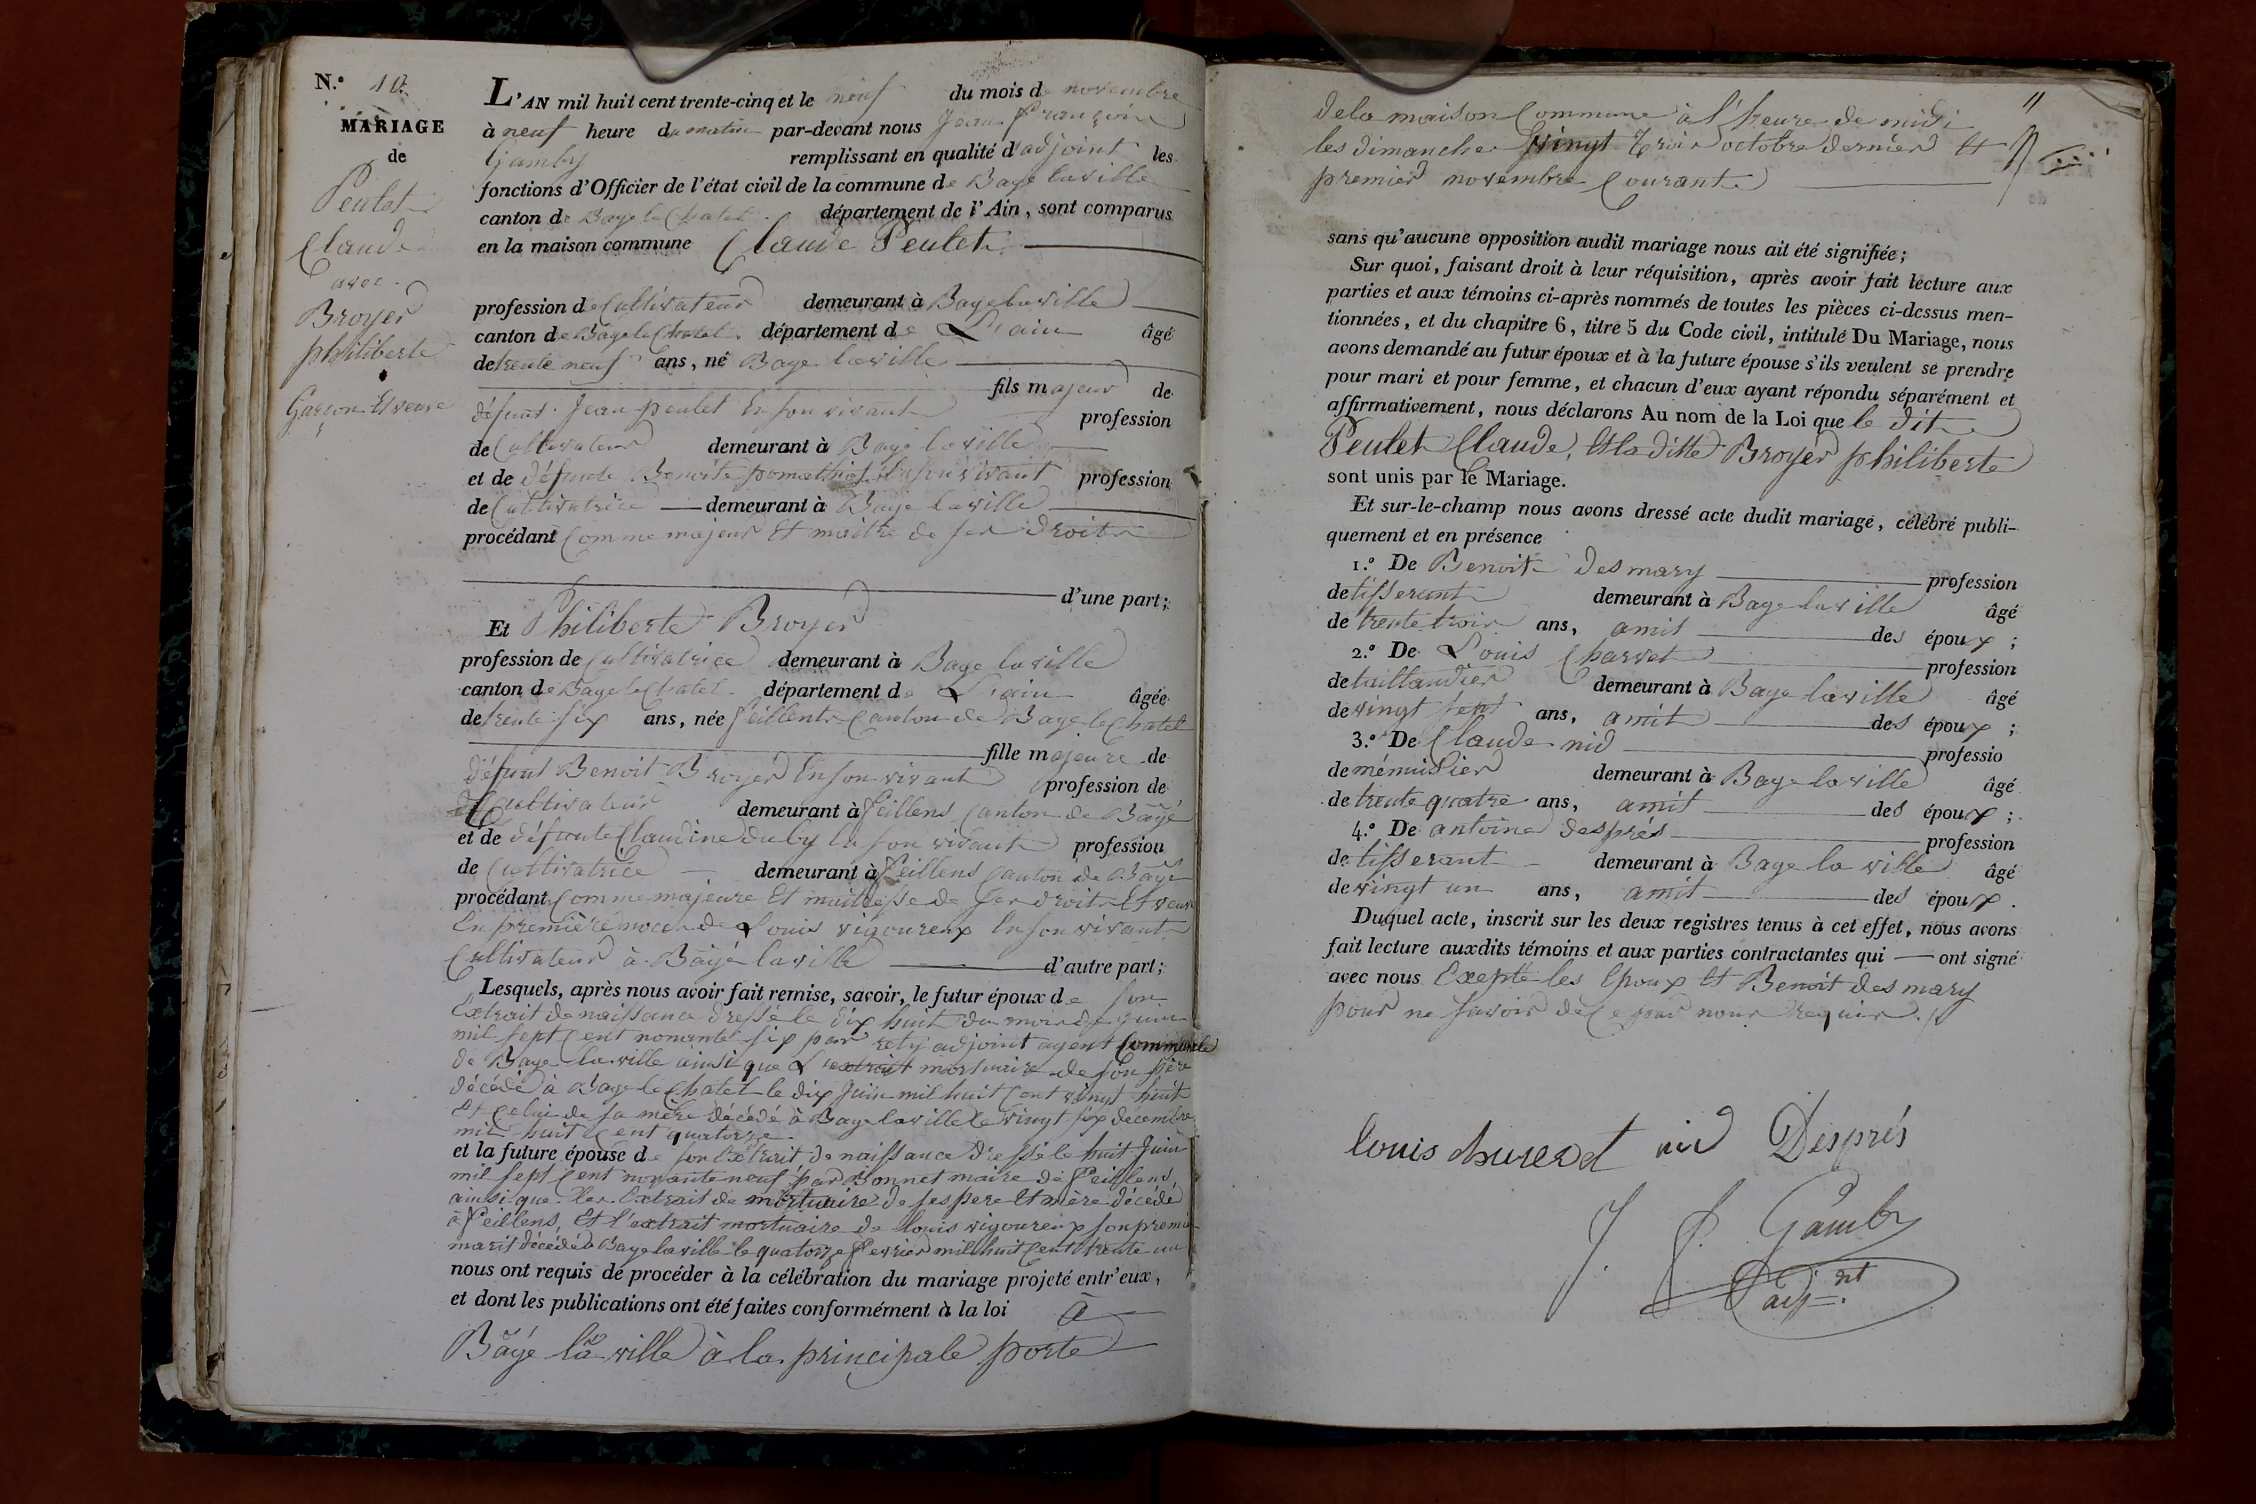 N.º 10
MARIAGE
de
Peulet
Claude
avec
Broyer
philiberte
Garçon Et veuve
L'AN mil huit cent trente-cinq et le neuf du mois de novembre
à neuf heure du matin par-devant nous Jean François
Gamby remplissant en qualité d'adjoint les
fonctions d'Officier de l'état civil de la commune de Bage la ville
canton de Bage le Chatel département de l'Ain, sont comparus
en la maison commune Claude Peulet
profession de Cultivateur demeurant à Bage la ville
canton de Bage le Chatel département de L'ain âgé
de trente neuf ans, né Bage la ville
fils majeur de
défunt Jean peulet En son vivant profession
de Cultivateur demeurant à Bage la ville
et de défunte Benoite En son vivant profession
de Cultivatrice demeurant à Bage la ville
procédant Comme majeur Et maitre de ses droits
d'une part;
Et Philiberte Broyer
profession de Cultivatrice demeurant à Bage la ville
canton de Bage le Chatel département de L'ain âgée
de trente six ans, née feillents Canton de Bage le Chatel
fille majeure de
défunt Benoit Broyer En son vivant profession de
Cultivateur demeurant à feillens Canton de Bagé
et de défunte Claudine duby En son vivant profession
de Cultivatrice demeurant à feillens Canton de Bagé
procédant Comme majeure Et maittesse de ses droits Et veuve
En première noce de Louis vigoureux En son vivant
Cultivateur à Bagé la ville d'autre part;
Lesquels, après nous avoir fait remise, savoir, le futur époux de son
Extrait de naissance dressé le dix huit du mois de juin
mil sept Cent nonante six par rety adjoint agent Communale
de Bage la ville ainsi que L'extrait mortuaire de son père
décédé à Bage le Chatel le dix Juin mil huit Cent vingt huit
Et Celui de sa mère décédé à Bage la ville le vingt six décembre
mil huit Cent quatorze
et la future épouse de son Extrait de naissance dressé le huit Juin
mil sept Cent nonante neuf par Bonnet maire de feillens,
ainsi que Les Extrait de mortuaire de ses pere Et mère décédé
à feillens, Et l'extrait mortuaire de Louis vigoureux son premier
marit décédé à Bage la ville le quatorze fevrier mil huit Cent trente un
nous ont requis de procéder à la célébration du mariage projeté entr'eux,
et dont les publications ont été faites conformément à la loi à
Bâgé la ville à la principale porte
11
de la maison Commune à l'heure de midi
les dimanches vingt Trois octobre dernier Et
premier novembre Courant
sans qu'aucune opposition audit mariage nous ait été signifiée;
Sur quoi, faisant droit à leur réquisition, après avoir fait lecture aux
parties et aux témoins ci-après nommés de toutes les pièces ci-dessus men-
tionnées, et du chapitre 6, titre 5 du Code civil, intitulé Du Mariage, nous
avons demandé au futur époux et à la future épouse s'ils veulent se prendre
pour mari et pour femme, et chacun d'eux ayant répondu séparément et
affirmativement, nous déclarons Au nom de la Loi que le dit
Peulet Claude, Et la ditte Broyer philiberte
sont unis par le Mariage.
Et sur-le-champ nous avons dressé acte dudit mariage, célébré publi-
quement et en présence
1.º De Benoit desmary profession
de tisserant demeurant à Bage la ville âgé
de trente trois ans, amit des époux;
2.º De Louis Charvet profession
de taillandier demeurant à Bage la ville âgé
de vingt sept ans, amit des époux;
3.º De Claude nid professio
de ménuisier demeurant à Bage la ville âgé
de trente quatre ans, amit des époux;
4.º De antoine després profession
de tisserant demeurant à Bage la ville âgé
de vingt un ans, amit des époux.
Duquel acte, inscrit sur les deux registres tenus à cet effet, nous avons
fait lecture auxdits témoins et aux parties contractantes qui ont signé
avec nous Exepté les Epoux Et Benoit des mary
pour ne savoir de Ce par nous Requis.
Louis charvet nid Després
J. f. Gamby
adj.nt